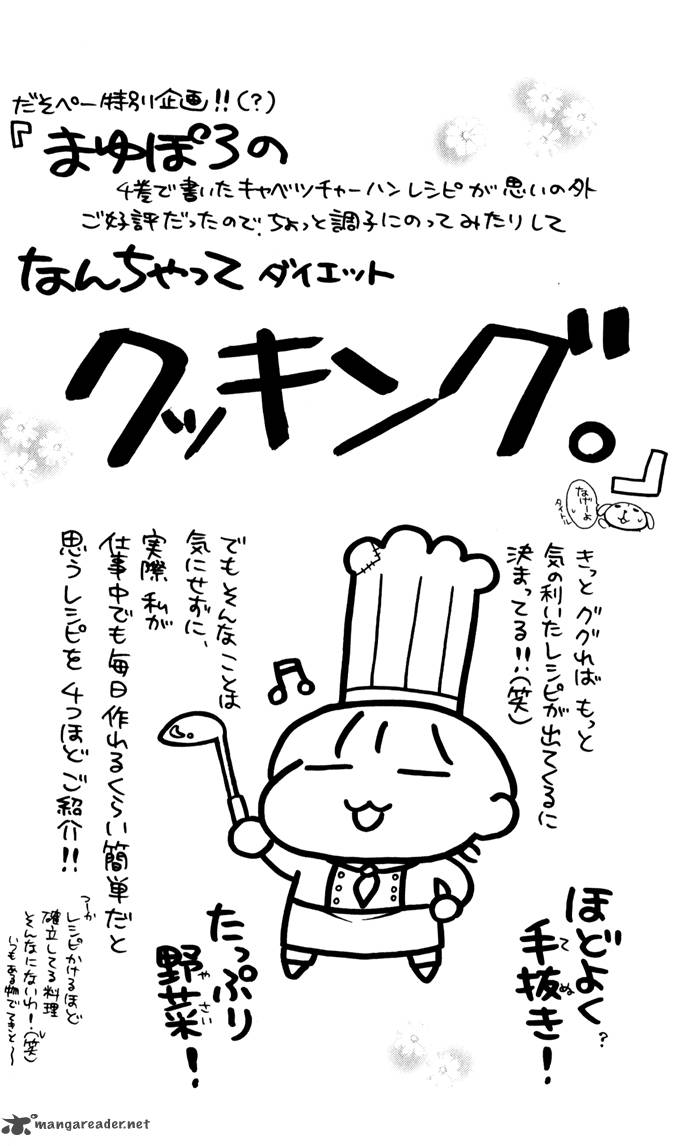 だそぺー特別企画!!(?)
『まゆぽろの
4巻で書いたキャベツチャーハンレシピが思いの外
ご好評だったので、ちょっと調子にのってみたりして
なんちゃってダイエット
クッキング。』
なげーよ
タイトル
きっとググればもっと
気の利いたレシピが出てくるに
決まってる!!(笑)
でもそんなことは
気にせずに、
実際私が
仕事中でも毎日作れるくらい簡単だと
思うレシピを4つほどご紹介!!
ほどよく?
手抜き!
てぬ
たっぷり
野菜!
やさい
つーか
レシピかけるほど
確立してる料理
そんなにないわ!(笑)
いつもある物でてきと〜〜
mangareader.net